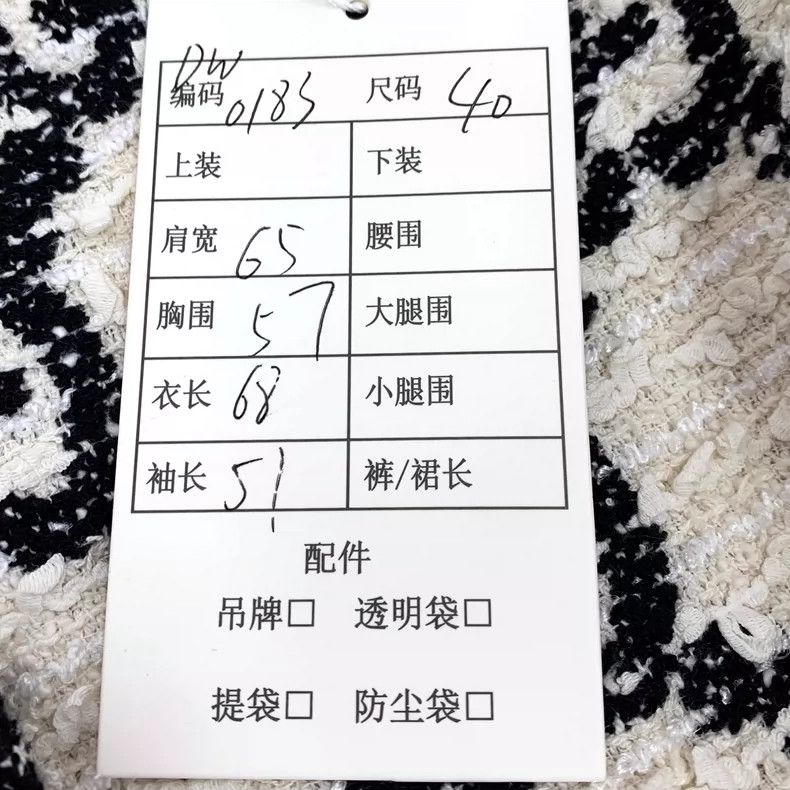 DW
编码 0183 尺码 40
上装 下装
肩宽 65 腰围
胸围 57 大腿围
衣长 68 小腿围
袖长 51 裤/裙长
配件
吊牌□ 透明袋□
提袋□ 防尘袋□